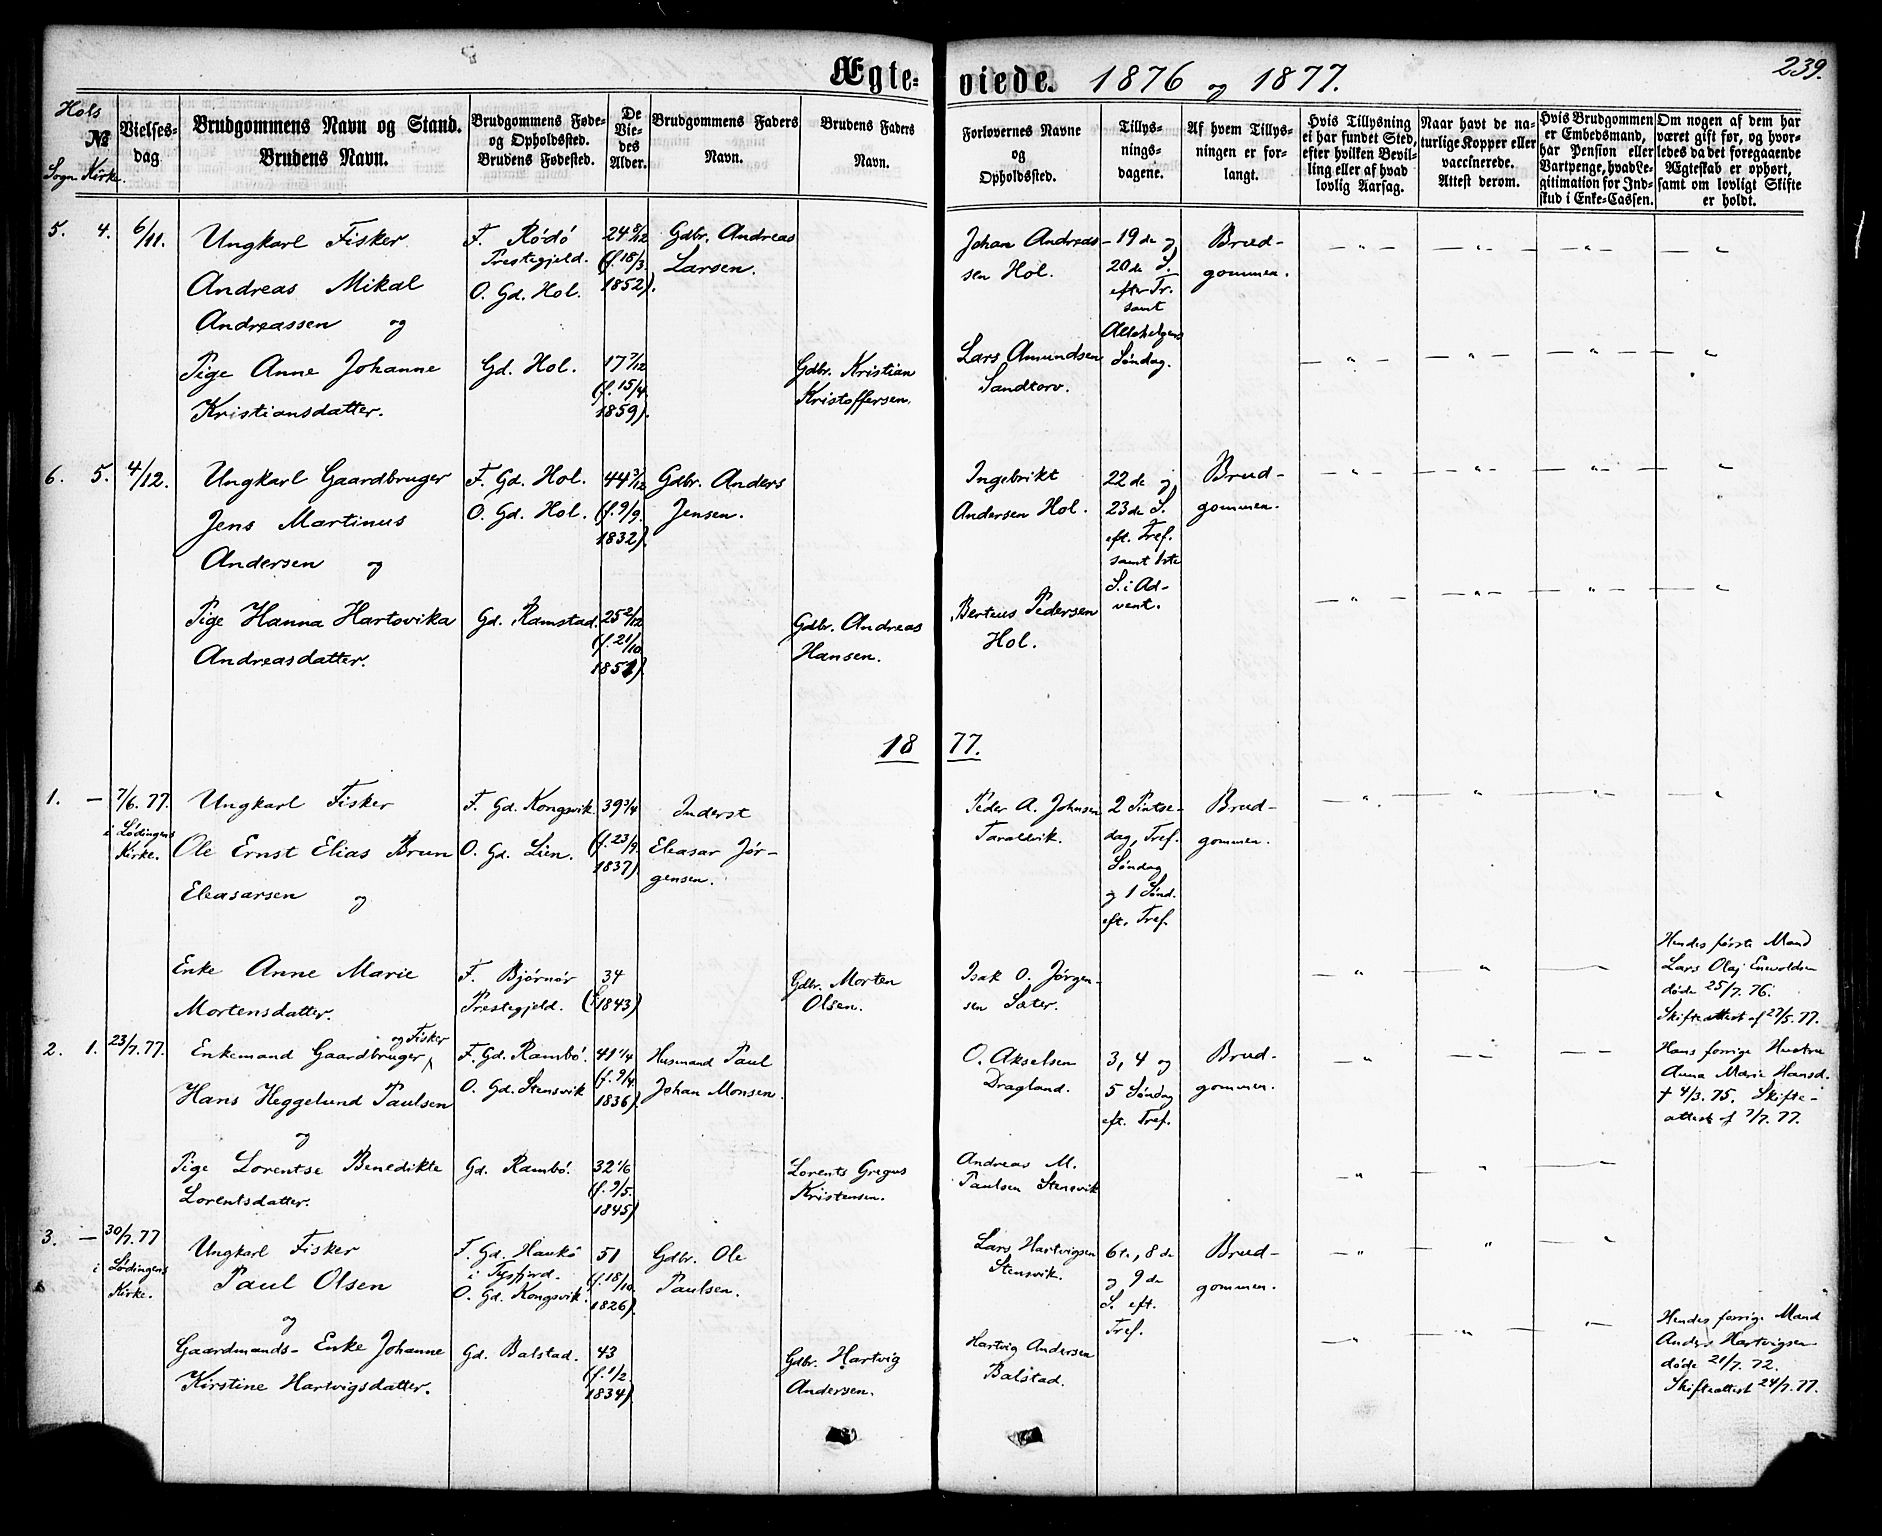 Ægteviede. 1876 og 1877.
239.
Hols
№
Sogn Kirke.
Vielses-
dag.
Brudgommens Navn og Stand.
Brudens Navn.
Brudgommens Føde-
og Opholdssted.
Brudens Fødested.
De
Vie-
des
Alder.
Brudgommens Faders
Navn.
Brudens Faders
Navn.
Forlovernes Navne
og
Opholdssted.
Tillys-
nings-
dagene.
Af hvem Tillys-
ningen er for-
langt.
Hvis Tillysning
ei har fundet Sted,
efter hvilken Bevil-
ling eller af hvad
lovlig Aarsag.
Naar havt de na-
turlige Kopper eller
vaccinerede.
Attest derom.
Hvis Brudgommen
er Embedsmand,
har Pension eller
Vartpenge, hvad Le-
gitimation for Ind-
skud i Enke-Cassen.
Om nogen af dem har
været gift før, og hvor-
ledes da det foregaaende
Ægteskab er ophørt,
samt om lovligt Skifte
er holdt.
5. 4. 6/11.
Ungkarl Fisker
Andreas Mikal
Andreassen og
F. Rødø
Prestegjeld.
O. Gd. Hol.
24 8/12
(f. 18/3
1852).
Gdbr. Andreas
Larsen.
Johan Andreas-
sen Hol.
19de og
20de S.
efter Tr.
samt
Allehelgens
Søndag.
Brud-
gommen.
Pige Anne Johanne
Kristiansdatter.
Gd. Hol.
17 7/12
(f. 15/4
1859).
Gdbr. Kristian
Kristoffersen.
Lars Amundsen
Sandtorv.
6. 5. 4/12.
Ungkarl Gaardbruger
Jens Martinus
Andersen og
F. Gd. Hol.
O. Gd. Hol.
44 3/12
(f. 9/9.
1832).
Gdbr. Anders
Jensen.
Ingebrikt
Andersen Hol.
22de og
23de S.
eft. Tref.
samt 1ste
S. i Ad-
vent.
Brud-
gommen.
Pige Hanna Hartsvika
Andreasdatter.
Gd. Ramstad.
25 2/12
(f. 21/10
1851).
Gdbr. Andreas
Hansen.
Berteus Pedersen
Hol.
1877.
1. — 7/6. 77.
i Lødingens
Kirke.
Ungkarl Fisker
Ole Ernst Elias Brun
Eleasarsen og
F. Gd. Kongsvik.
O. Gd. Lien.
39 3/4
(f. 23/9.
1837).
Inderst
Eleasar Jør-
gensen.
Peder A. Johnsen
Taraldvik.
2 Pintse-
dag, Tref.
Søndag
og 1 Sønd.
eft. Tref.
Brud-
gommen.
Enke Anne Marie
Mortensdatter.
F. Bjørnør
Prestegjeld.
34
(f. 1843)
Gdbr. Morten
Olsen.
Isak O. Jørgen-
sen Sæter.
Hendes første Mand
Lars Olaj Enevoldsen
døde 25/7. 76.
Skifteattest af 29/5. 77.
2. 1. 23/7. 77.
og Fisker
Enkemand Gaardbruger
Hans Heggelund Paulsen
og
F. Gd. Rambø.
O. Gd. Stensvik
41 1/4
(f. 9/4.
1836).
Husmand Paul
Johan Monsen.
O. Akselsen
Dragland.
3, 4 og
5 Søndag
eft. Tref.
Brud-
gommen.
Hans forrige Hustru
Anna Marie Hansd.
† 4/3. 75. Skifte-
attest af 7/7. 77.
Pige Lorentse Benedikte
Lorentsdatter.
Gd. Rambø.
32 1/6
(f. 9/5.
1845)
Lorents Gregus
Kristensen.
Andreas M.
Paulsen Stensvik
3. — 30/7. 77
i Lødingens
Kirke.
Ungkarl Fisker
Paul Olsen
og
F. Gd. Haukø
i Tysfjord.
O. Gd. Kongsvik.
51
(f. 18/10.
1826).
Gdbr. Ole
Paulsen.
Lars Hartvigsen
Stensvik.
6te, 8de
og 9de
S. eft.
Tref.
Brud-
gommen.
Gaardmands-Enke Johanne
Kirstine Hartvigsdatter.
Gd. Balstad.
43
(f. 1/2.
1834).
Gdbr. Hartvig
Andersen.
Hartvig Andersen
Balstad.
Hendes forrige Mand
Anders Hartvigsen
døde 21/7. 72.
Skifteattest 24/7. 77.